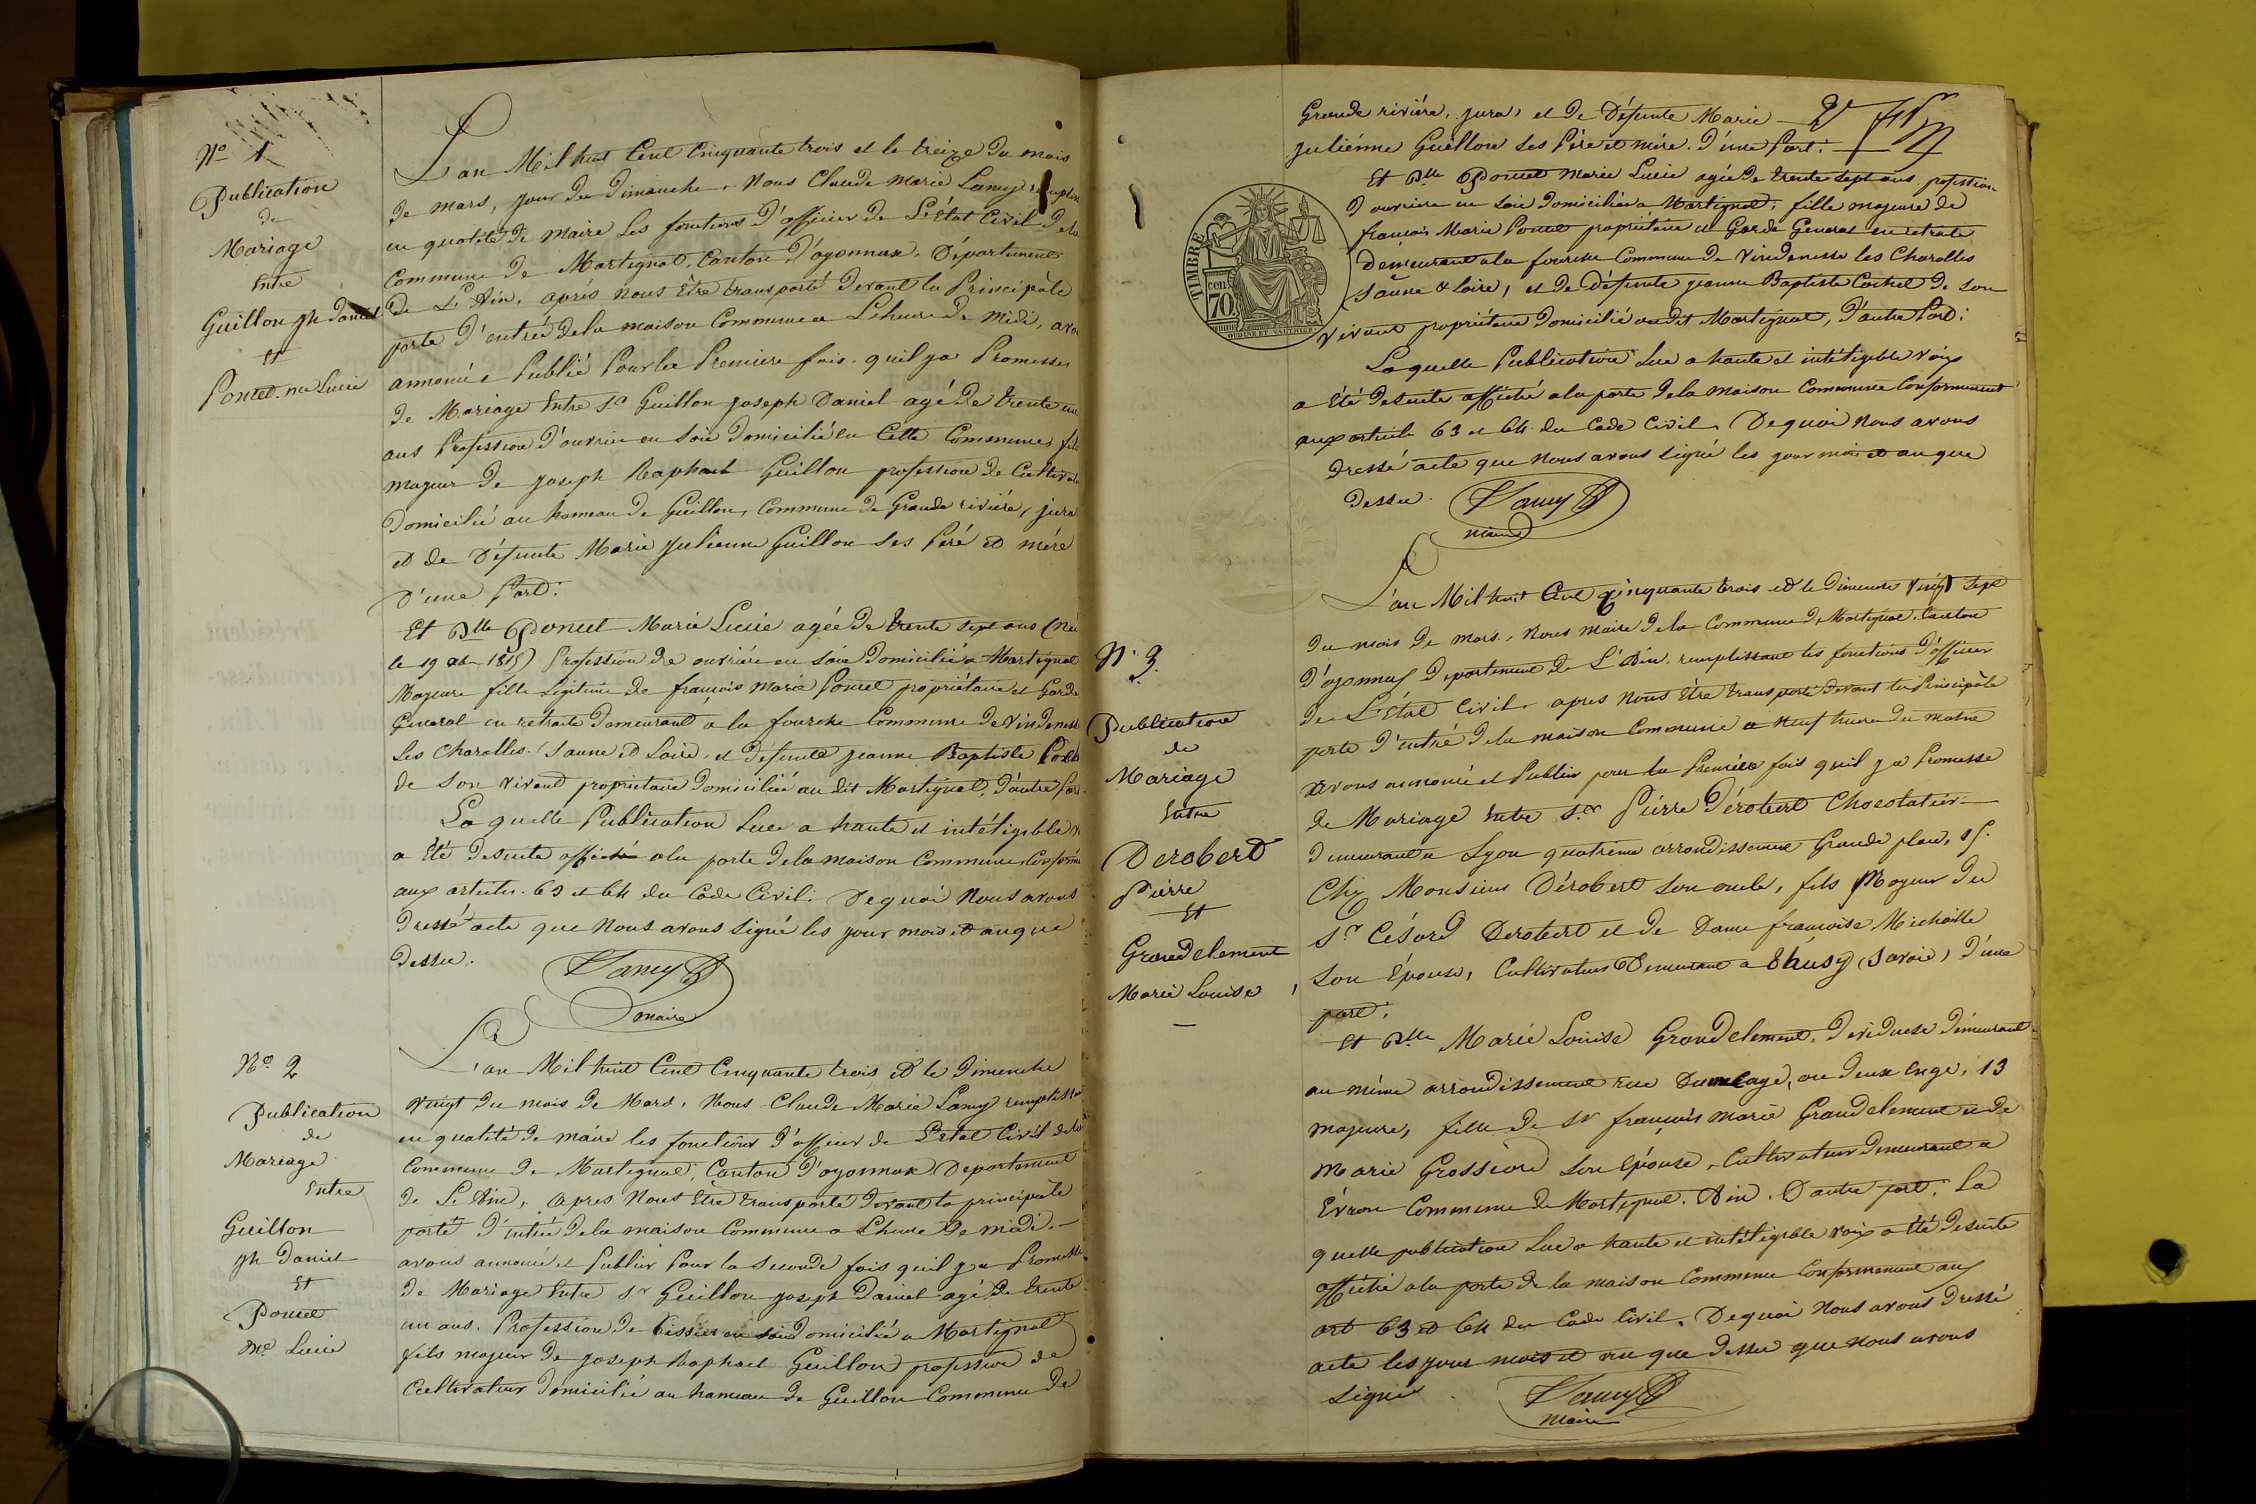 Nº 1
Publication
de
Mariage
Entre
Guillon jph Daniel
Et
Poncet mie Lucie
L'an Mil huit Cent Cinquante trois et le treize du mois
de mars, jour du Dimanche, Nous Claude Marie Lamy
en qualité de maire les fonctions d'officier de L'état Civil de la
Commune de Martignat, Canton d'oyonnax, Département
de L'Ain, après nous être transporté devant la Principale
porte d'entrée de la maison Commune a L'heure de Midi,
annoncé & Publié Pour la Premiere fois qu'il y a Promesse
de Mariage Entre Sr Guillon joseph Daniel agé de trente un
ans Profession d'ouvrier en Soie Domicilié en Cette Commune,
majeur de joseph Raphael Guillon profession de
Domicilié au hameau de Guillon, Commune de Grande rivière, jura
et de Défunte Marie Julienne Guillon Ses Péré et mére
D'une Part:
Et Dlle Poncet Marie Lucie agée de trente sept ans (Née
le 19 1815) Profession de ouvrière en Soie Domiciliée a Martignat
Majeure fille Légitime de françois Marie Poncet propriétaire et Garde
General en retraite Demeurant a la fourche Commune de
Les Charolles (Saune et Loire, et defunte jeanne Baptiste
de Son vivant propriétaire Domiciliée au dit Martignat, d'autre Part
La quelle Publication Luee a haute et intéligible
a Eté desuite affiché a la porte de la maison Commune
aux articles 63 et 64 du Code Civil. De quoi Nous avons
dressé acte que Nous avons Signé les jour mois et an que
dessu.
Lamy
maire
Nº 2
Publication
de
Mariage
Entre
Guillon
jph Daniel
Et
Poncet
Mie Lucie
L'an Mil huit Cent Cinquante trois et le Dimanche
vingt du mois de Mars, Nous Claude Marie Lamy
en qualité de maire les fonctions d'officier de L'état Civil de la
Commune de Martignat, Canton d'oyonnax Departement
de L'Ain, apres Nous Etre transporté devant la principale
porte d'entrée de la maison Commune a L'heure de midi.
avons annoncé et Publier Pour la Seconde fois qu'il y a Promesse
de Mariage Entre Sr Guillon joseph Daniel agé de trente
un ans. Profession de tissier en soie Domicilié a Martignat
fils majeur de joseph Raphael Guillon profession de
Cultivateur Domicilié au hameau de Guillon Commune de
Grande riviére, jura, et de Défunte Marie
julienne Guillon Ses Pére et mére. d'une Part:
TIMBRE
70
Et Dlle Poncet Marie Lucie agée de trente sept ans profession
D'ouvriere en Soie Domiciliée a Martignat, fille majeure de
françois Marie Poncet propriétaire et Garde General en retraite
Demeurant a la fourche Commune de les Charolles
Saune & Loire, et de défunte jeanne Baptiste de Son
vivant propriétaire Domicilié au dit Martignat, d'autre Part:
La quelle Publication Lue a haute et intéligible voix
a Eté desuite affiché a la porte de la maison Commune Conformement
aux article 63 et 64 du Code Civil. De quoi Nous avons
dressé acte que Nous avons Signé les jour mois et an que
dessu.
Lamy
maire
Nº 3
Publication
de
Mariage
Entre
Derobert
Pierre
Et
Grandelement
Marie Louise
L'an Mil huit Cent Cinquante trois et le Dimanche vingt sept
du mois de mars, Nous Maire de la Commune de Martignat Canton
d'oyonnax Departement de L'Ain, remplissant les fonctions d'officier
de L'Etat Civil, apres Nous Etre transporté devant la Principale
porte d'entré de la maison Commune a neuf heure du matin
avons annoncé et Publier pour la Premiere fois qu'il y a Promesse
de Mariage Entre Sr Pierre Dérobert Chocolatier
Demeurant a Lyon quatrieme arrondissement Grande place, 15.
Chez Monsieur Dérobert Son oncle, fils Majeur du
Sr Césard Derobert et de Dame françoise Michaille
Son Epouse, Cultivateurs Demeurant a Thusy (Savoie) d'une
part.
Et Dlle Marie Louise Grandelement, Devideuse demeurant
au même arrondissement rue Dumenge, ou Deux enge, 13
majeure, fille de Sr françois Marie Grandelement et de
Marie Grossiord Son Epouse, Cultivateur Demeurant a
Evron Commune de Martignat. Ain. D'autre part. La
quelle publication Lue a haute et intéligible voix a été desuite
affiché a la porte de la maison Commune Conformement aux
art 63 et 64 du Code Civil. De quoi Nous avons Dressé
acte les jour mois et an que dessu que nous avons
Signé
Lamy
maire